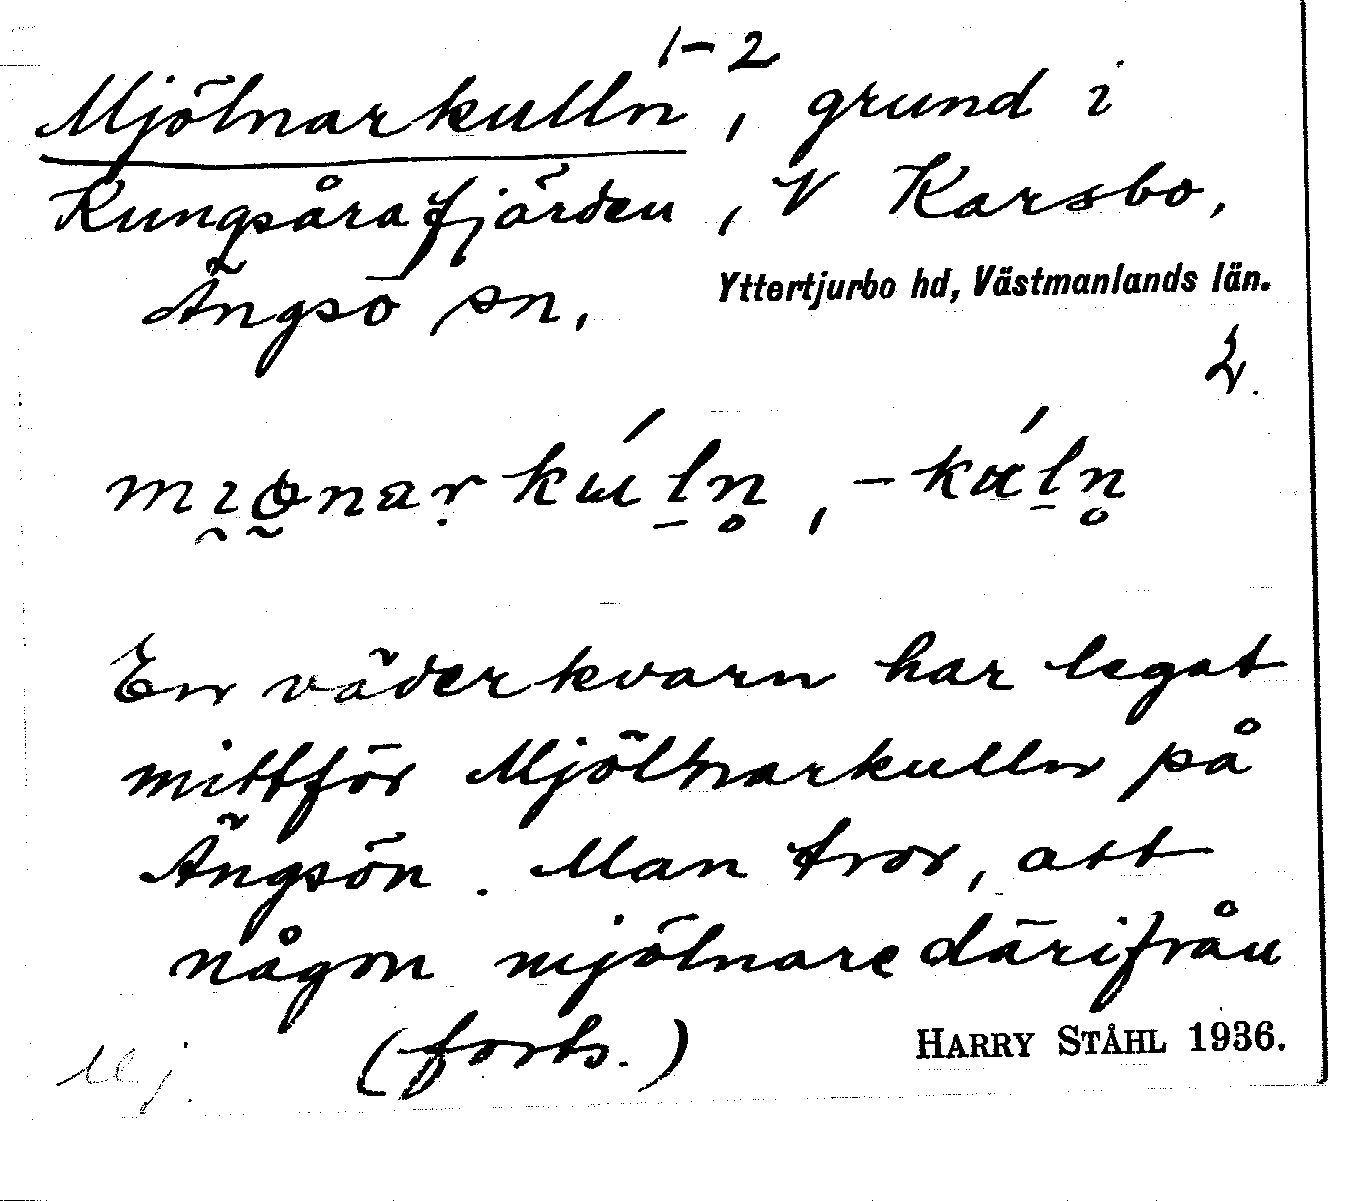 1-2
Mjölnarkulln, grund i
Kungsårafjärden, V Karsbo,
Ängsö sn,
Yttertjurbo hd, Västmanlands län.
En väderkvarn har legat
mittför Mjölnarkulln på
Ängsön. Man tror, att
någon mjölnare därifrån
(forts.)
HARRY STÅHL 1936.
Mj.